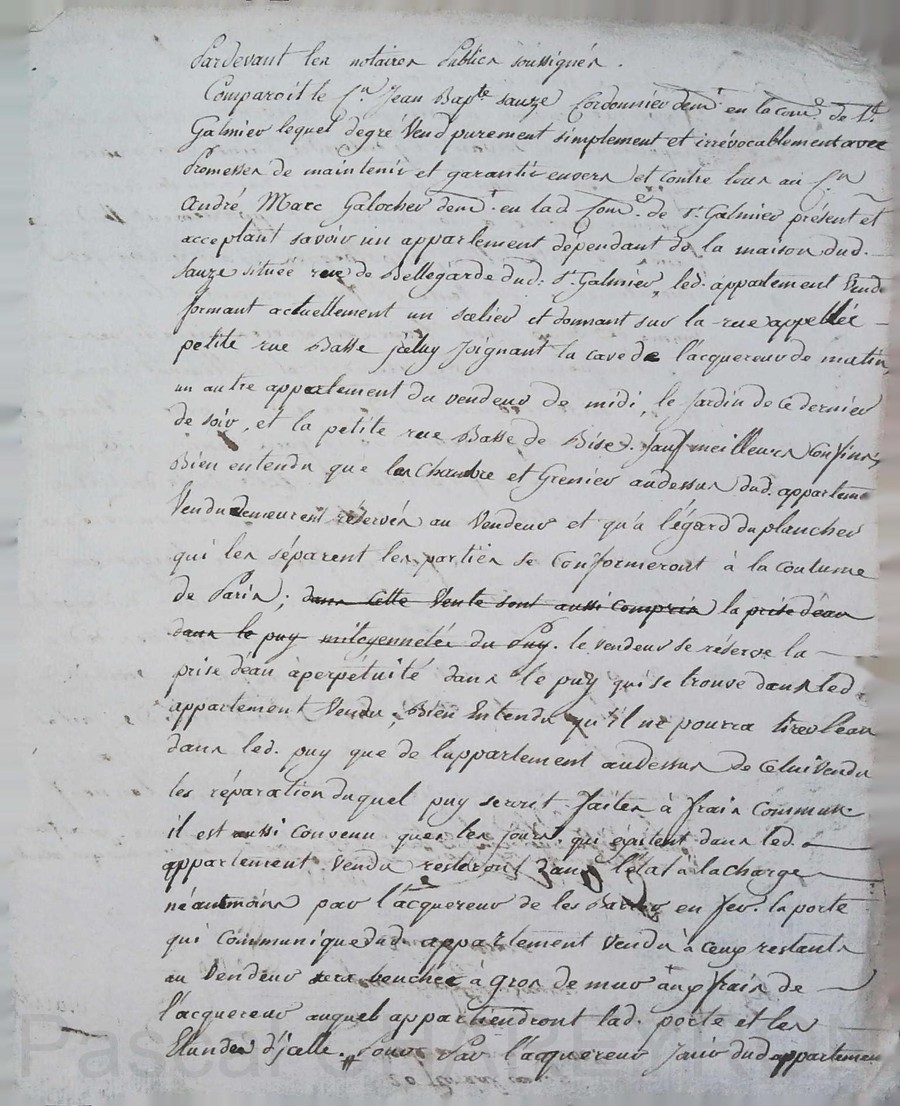 Pardevant les notaires Publics soussignés.
Comparoit le Cn. Jean Bapte. sauze Cordonnier demt. en la come. de St.
Galmier lequel degré Vend purement simplement et irrévocablement avec
Promesses de maintenir et garantir envers et contre tous au Cn
André Marc Galocher demt. en lad. Come. de st. Galmier présent et
acceptant savoir un appartement dépendant de la maison dud.
Sauze située rue de Bellegarde dud: St. Galmier, led. appartement Vendu
formant actuellement un scelier et donnant sur la rue appellée
petite rue Basse jceluy Joignant la cave de l'acquereur de matin,
un autre appartement du vendeur de midi, le Jardin de ce dernier
de soir, et la petite rue Basse de Bise. Sauf meilleurs Confins,
Bien entendu que les chambre et Grenier audessus dud. appartemt
Vendu demeurent réservés au Vendeur et qu'a l'égard du plancher
qui les séparent les parties se Conformeront à la coutume
de Paris; dans cette Vente sont aussi compris la prise d'eau
dans le puy mitoyennetée du Puy. le vendeur se réserve la
prise d'eau à perpétuité dans le puy qui se trouve dans led.
appartement Vendu; Bien Entendu qu'il ne pourra tirer l'eau
dans led. puy que de l'appartement audessus de Celui Vendu
les réparation duquel puy seront faites à frais Commun
il est aussi convenu que les jours qui existent dans led.
appartement Vendu resteront dans l'état à la charge
néantmoins par l'acquereur de les Barrer en fer. la porte
qui Communique dud. appartement Vendu à ceux restants
au Vendeur sera bouchée à gros de mur aux frais de
l'acquereur auquel appartiendront lad. porte et les
d'jcelle. Pour Par l'acquereur Jouir dud appartement